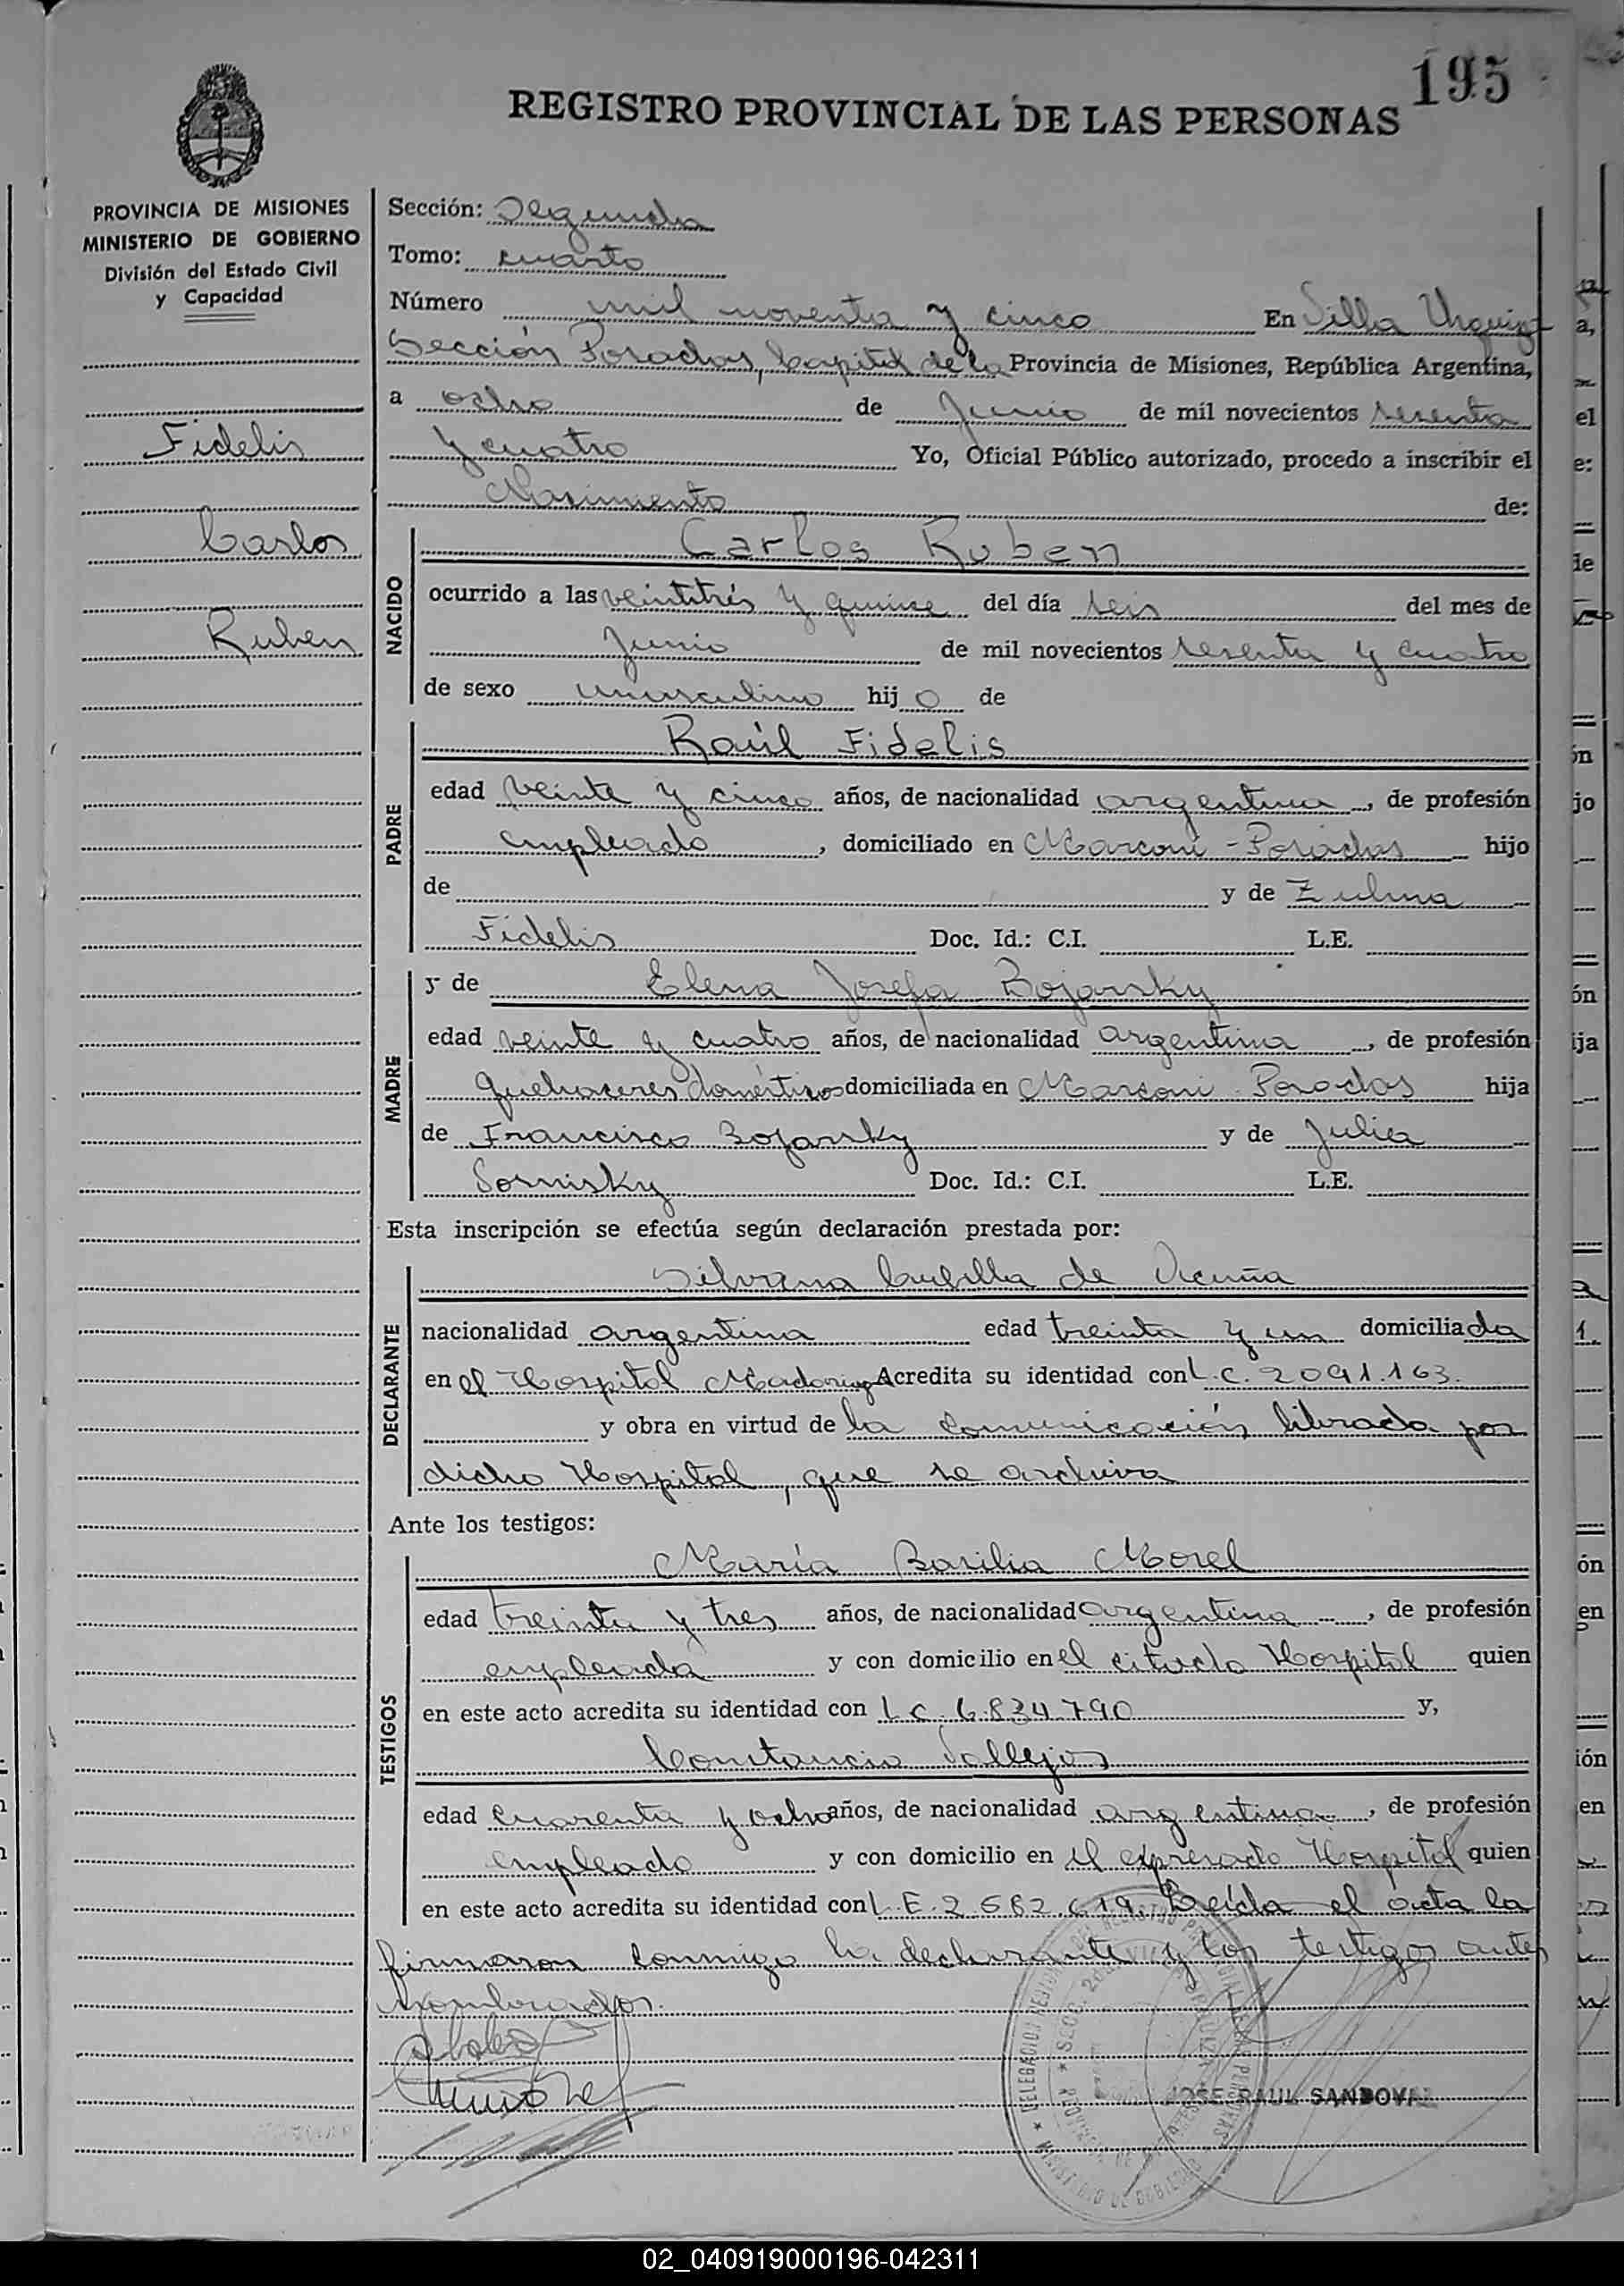 195
REGISTRO PROVINCIAL DE LAS PERSONAS
PROVINCIA DE MISIONES
MINISTERIO DE GOBIERNO
División del Estado Civil
y Capacidad
Fidelis
Carlos
Ruben
Sección: Segunda
Tomo: cuarto
Número mil noventa y cinco En Villa Urquiza
Sección Posadas, Capital de la Provincia de Misiones, República Argentina,
a ocho de Junio de mil novecientos sesenta
y cuatro Yo, Oficial Público autorizado, procedo a inscribir el
Nacimiento de:
NACIDO
Carlos Ruben
ocurrido a las veintitrés y quince del día seis del mes de
Junio de mil novecientos sesenta y cuatro
de sexo masculino hijo de
PADRE
Raúl Fidelis
edad veinte y cinco años, de nacionalidad argentina, de profesión
empleado, domiciliado en Marconi - Posadas hijo
de y de Zulma
Fidelis Doc. Id.: C.I. L.E.
MADRE
y de Elena Josefa Bojansky
edad veinte y cuatro años, de nacionalidad argentina, de profesión
quehaceres domésticos domiciliada en Marconi - Posadas hija
de Francisco Bojansky y de Julia
Sornisky Doc. Id.: C.I. L.E.
Esta inscripción se efectúa según declaración prestada por:
DECLARANTE
Silvana Cubilla de Vicuña
nacionalidad argentina edad treinta y un domiciliada
en el Hospital Madariaga Acredita su identidad con L.C. 2.091.163.
y obra en virtud de la comunicación librada por
dicho Hospital, que se archiva
Ante los testigos:
TESTIGOS
María Basilia Morel
edad treinta y tres años, de nacionalidad argentina, de profesión
empleada y con domicilio en el citado Hospital quien
en este acto acredita su identidad con L.C. 6.834.790 y,
Constancio Vallejos
edad cuarenta y ocho años, de nacionalidad argentina, de profesión
empleado y con domicilio en el expresado Hospital quien
en este acto acredita su identidad con L.E. 2.582.619. Leída el acta la
firmaron conmigo la declarante y los testigos antes
nombrados.
JOSE RAUL SANDOVAL
02_040919000196-042311